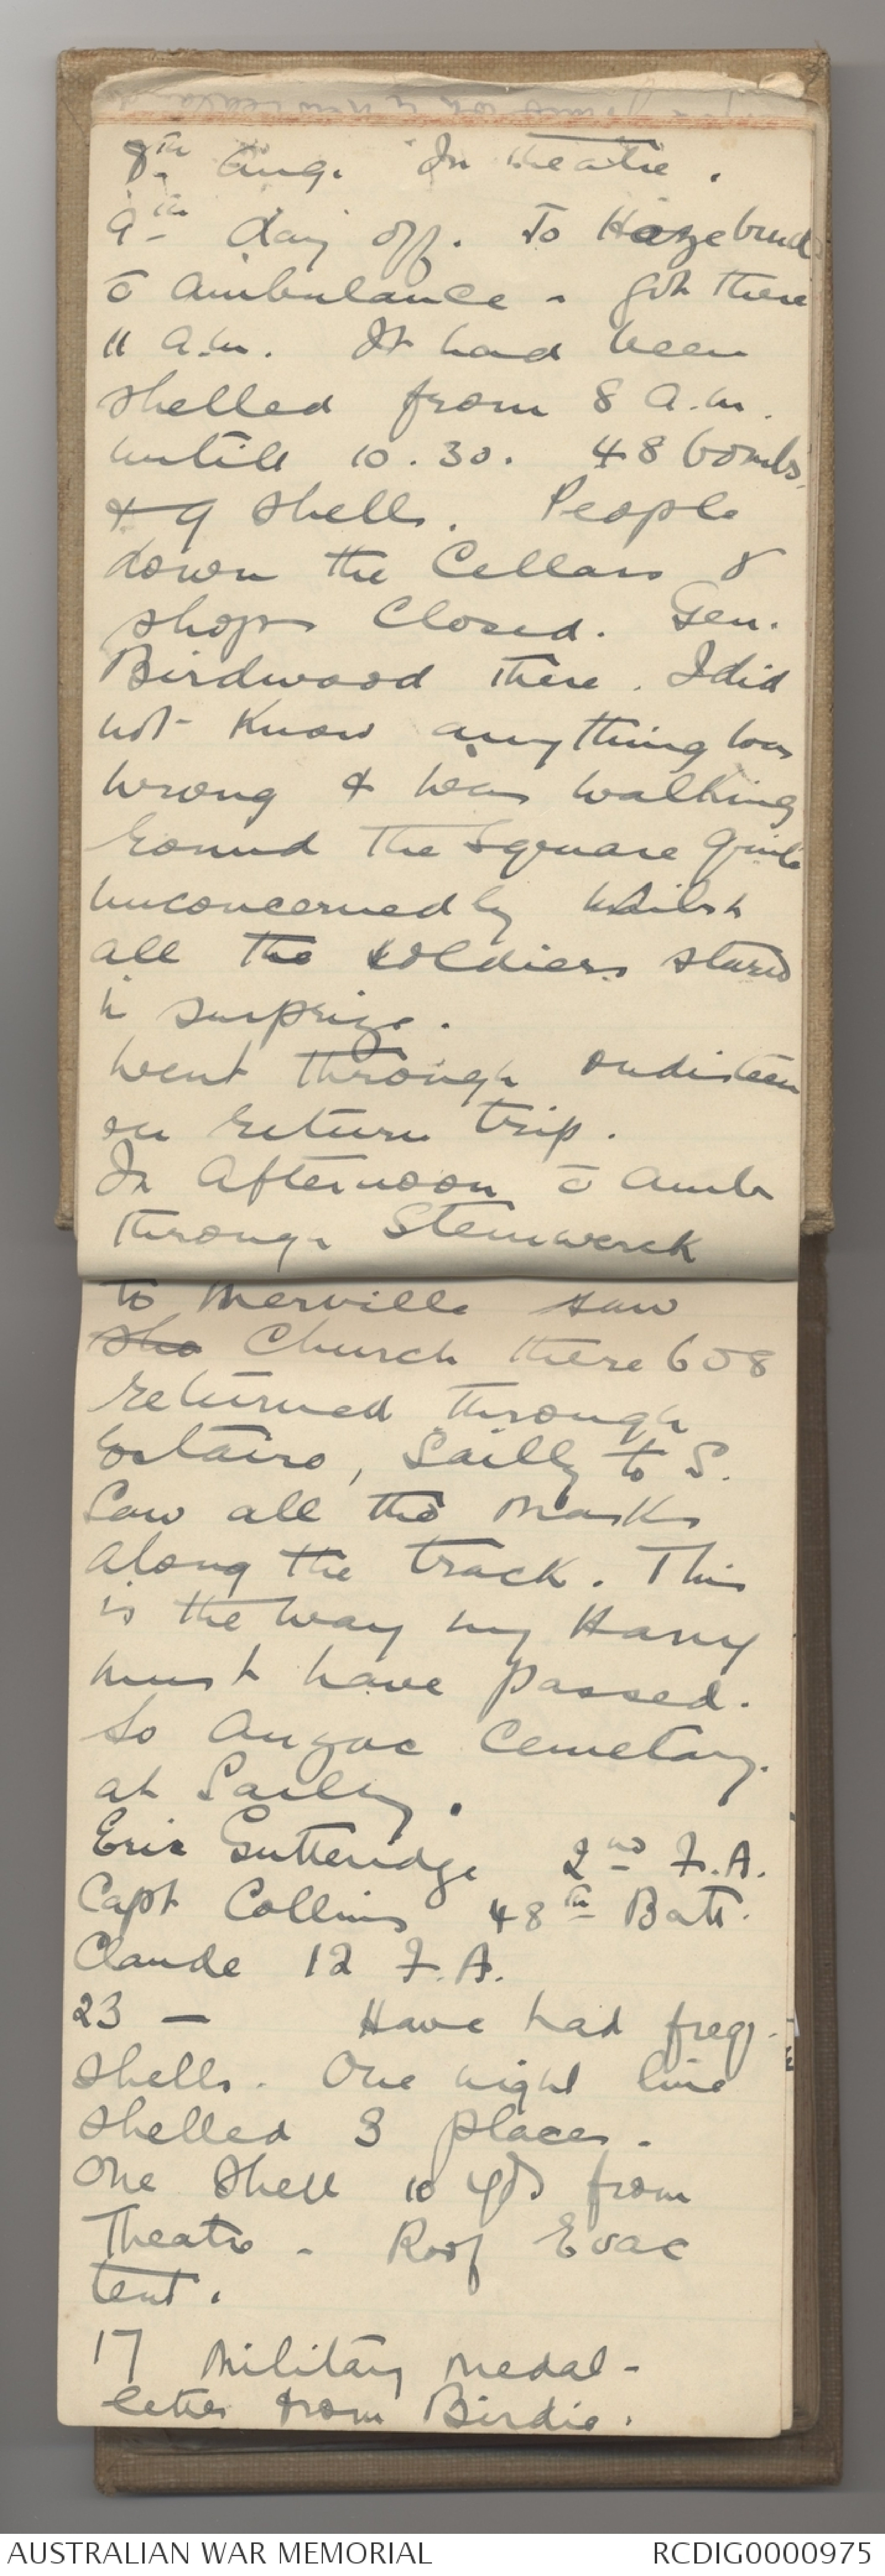 8th Aug. In theatre.
9th Day off. To Hazebruck
c̄ ambulance - got there
11 a.m. It had been
shelled from 8 a.m.
untill 10.30. 48 bombs,
+ 9 shells. People
down the Cellars &
shops Closed. Gen.
Birdwood there. I did
not know anything was
wrong & was walking
round the Square quite
unconcernedly whilst
all the soldiers stared
in surprize.
Went through
on return trip.
In Afternoon c̄ Amb
through Steinwerck
to Merville saw
sho Church there 608
returned through
Estaires, Sailly to S.
Saw all the
along the track. This
is the way my Harry
must have passed.
To Anzac Cemetary.
at Sailly.
Eric Gutteridge 2nd F.A.
Capt Collins 48th Batt.
Claude 12 F.A.
23 — Have had freq.
shells. One night line
shelled 3 places.
One shell 10 yds from
Theatre - Roof Evac
tent.
17 Military Medal -
letter from Birdie.
AUSTRALIAN WAR MEMORIAL RCDIG0000975